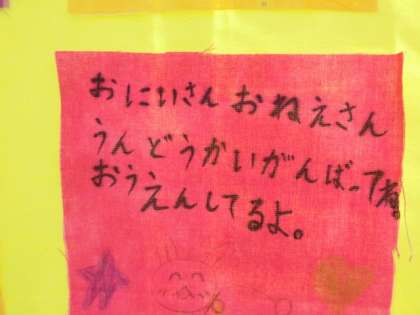 おにいさん おねえさん
うんどうかいがんばってね。
おううえんしてるよ。